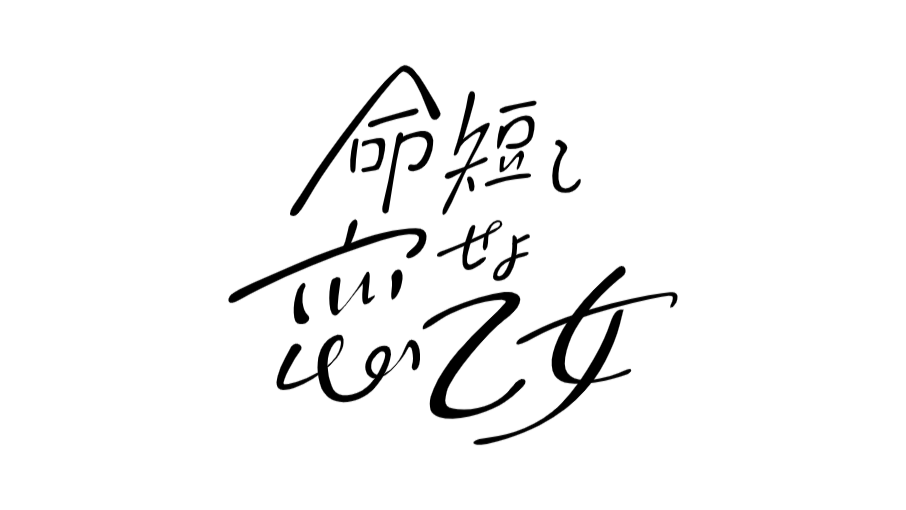 命短し
恋せよ
乙女